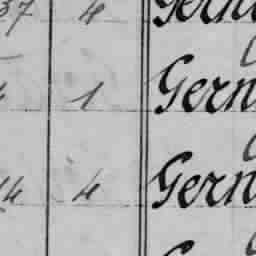 37 4 Gern
1 Gern
14 4 Gern